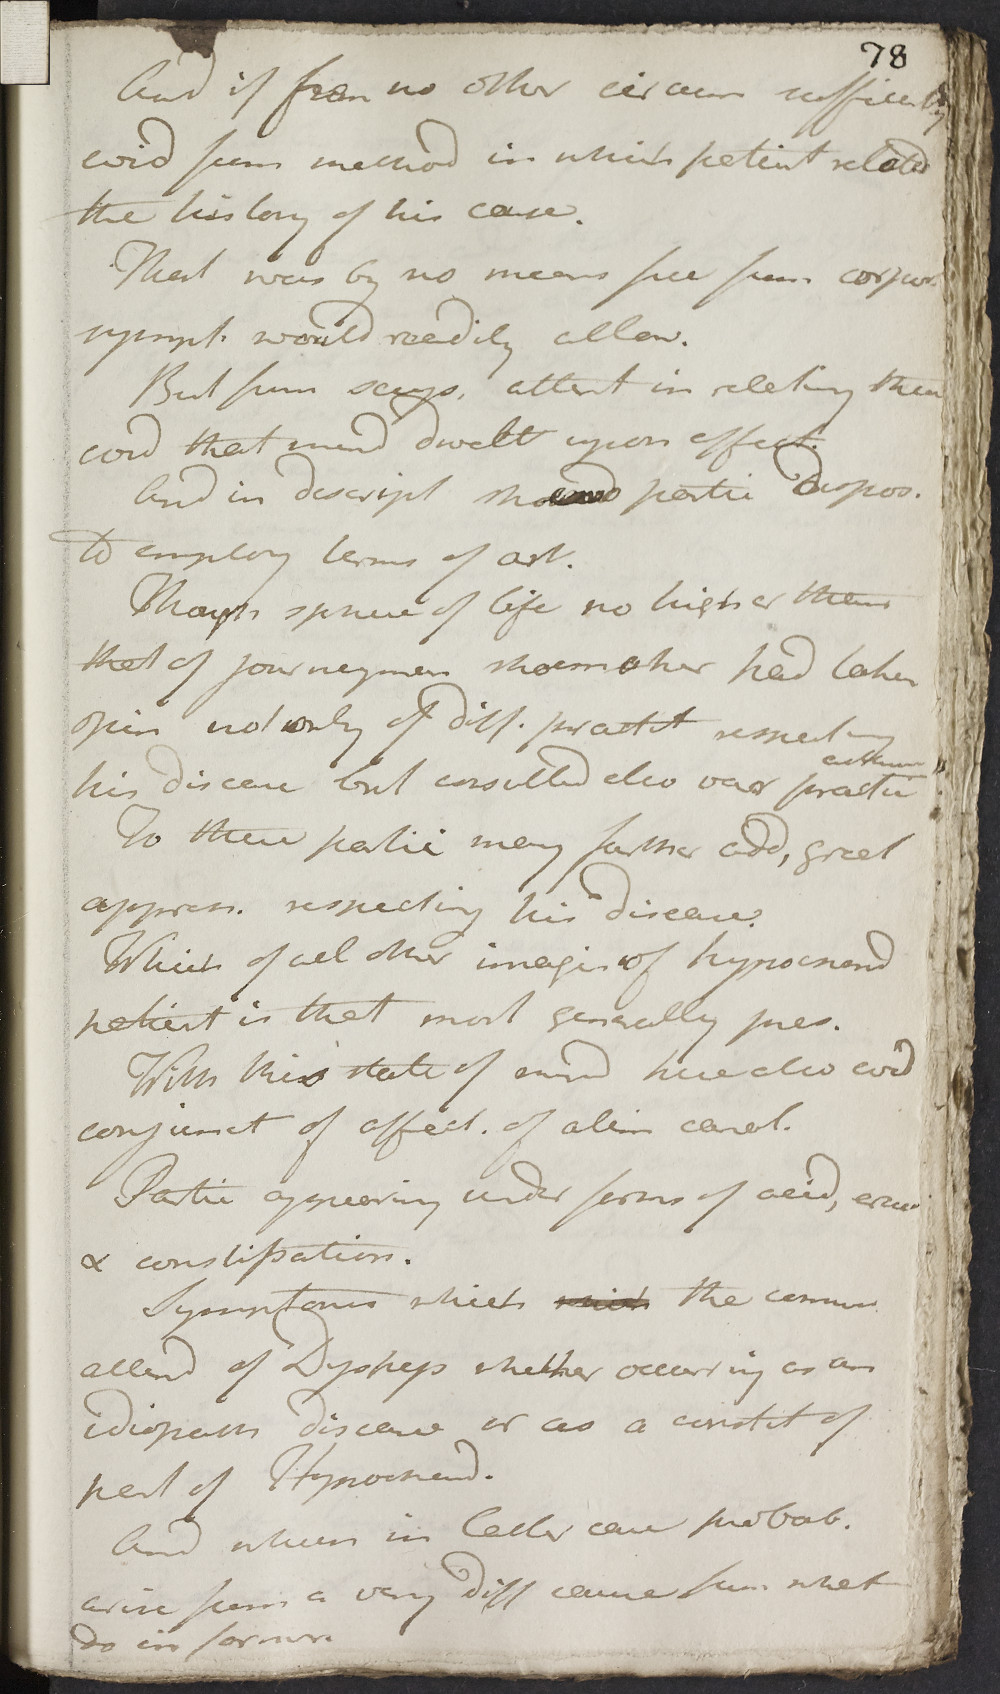 78
And if from no other circum sufficiently
evid from method in which patient related
the history of his case.
That was by no means free from corpor.
sympt. would readily allow.
But from scrup. attent in relating them
evid that mind dwelt upon effect.
And in descript partic dispos.
to employ terms of art.
Though sphere of life no higher than
that of journeyman shoemaker had taken
opin not only of diff. practit respecting
his disease but consulted also var practic
To these partic may further add, great
appren. respecting his disease.
Which of all other imagin of hypochond
patient is that most generally pres.
With this state of mind here also evid
conjunct of affect. of alim canal.
Partic appearing under form of acid, eruct
& constipation.
Symptoms which the common
attend of Dyspeps whether occurring as an
idiopath disease or as a constit of
part of Hypochond.
And when in latter case probab.
arise from a very diff cause from what
do in former.